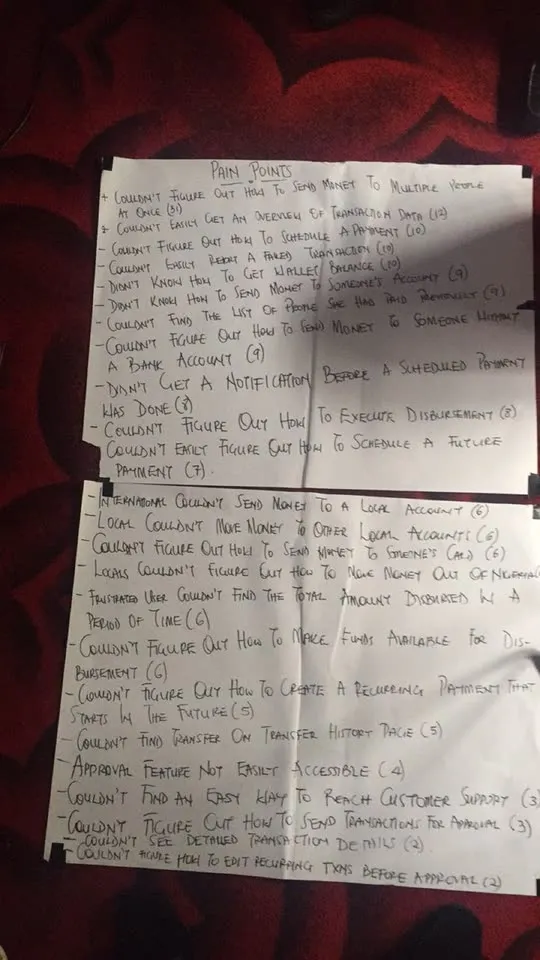 PAIN POINTS
+ COULDN'T FIGURE OUT HOW TO SEND MONEY TO MULTIPLE PEOPLE
AT ONCE (31)
COULDN'T EASILY GET AN OVERVIEW OF TRANSACTION DATA (12)
- COULDN'T FIGURE OUT HOW TO SCHEDULE A PAYMENT (10)
- COULDN'T EASILY REPORT A FAILED TRANSACTION (10)
- DIDN'T KNOW HOW TO GET WALLET BALANCE (10)
- DIDN'T KNOW HOW TO SEND MONEY TO SOMEONE'S ACCOUNT (9)
- COULDN'T FIND THE LIST OF PEOPLE SHE HAD PAID PREVIOUSLY (9)
- COULDN'T FIGURE OUT HOW TO SEND MONEY TO SOMEONE WITHOUT
A BANK ACCOUNT (9)
- DIDN'T GET A NOTIFICATION BEFORE A SCHEDULED PAYMENT
WAS DONE (8)
- COULDN'T FIGURE OUT HOW TO EXECUTE DISBURSEMENT (8)
COULDN'T EASILY FIGURE OUT HOW TO SCHEDULE A FUTURE
PAYMENT (7).
- INTERNATIONAL COULDN'T SEND MONEY TO A LOCAL ACCOUNT (6)
- LOCAL COULDN'T MOVE MONEY TO OTHER LOCAL ACCOUNTS (6)
- COULDN'T FIGURE OUT HOW TO SEND MONEY TO SOMEONE'S CARD (6)
- LOCALS COULDN'T FIGURE OUT HOW TO MOVE MONEY OUT OF NIGERIA
- FRUSTRATED USER COULDN'T FIND THE TOTAL AMOUNT DISBURSED IN A
PERIOD OF TIME (6)
- COULDN'T FIGURE OUT HOW TO MAKE FUNDS AVAILABLE FOR DIS-
BURSEMENT (6)
- COULDN'T FIGURE OUT HOW TO CREATE A RECURRING PAYMENT THAT
STARTS IN THE FUTURE (5)
- COULDN'T FIND TRANSFER ON TRANSFER HISTORY PAGE (5)
- APPROVAL FEATURE NOT EASILY ACCESSIBLE (4)
- COULDN'T FIND AN EASY WAY TO REACH CUSTOMER SUPPORT (3)
- COULDN'T FIGURE OUT HOW TO SEND TRANSACTIONS FOR APPROVAL (3)
- COULDN'T SEE DETAILED TRANSACTION DETAILS (2).
- COULDN'T FIGURE HOW TO EDIT RECURRING TXNS BEFORE APPROVAL (2)